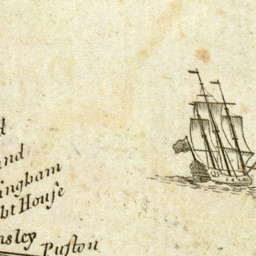 d
and
ingham
ht House
nsley
Puston